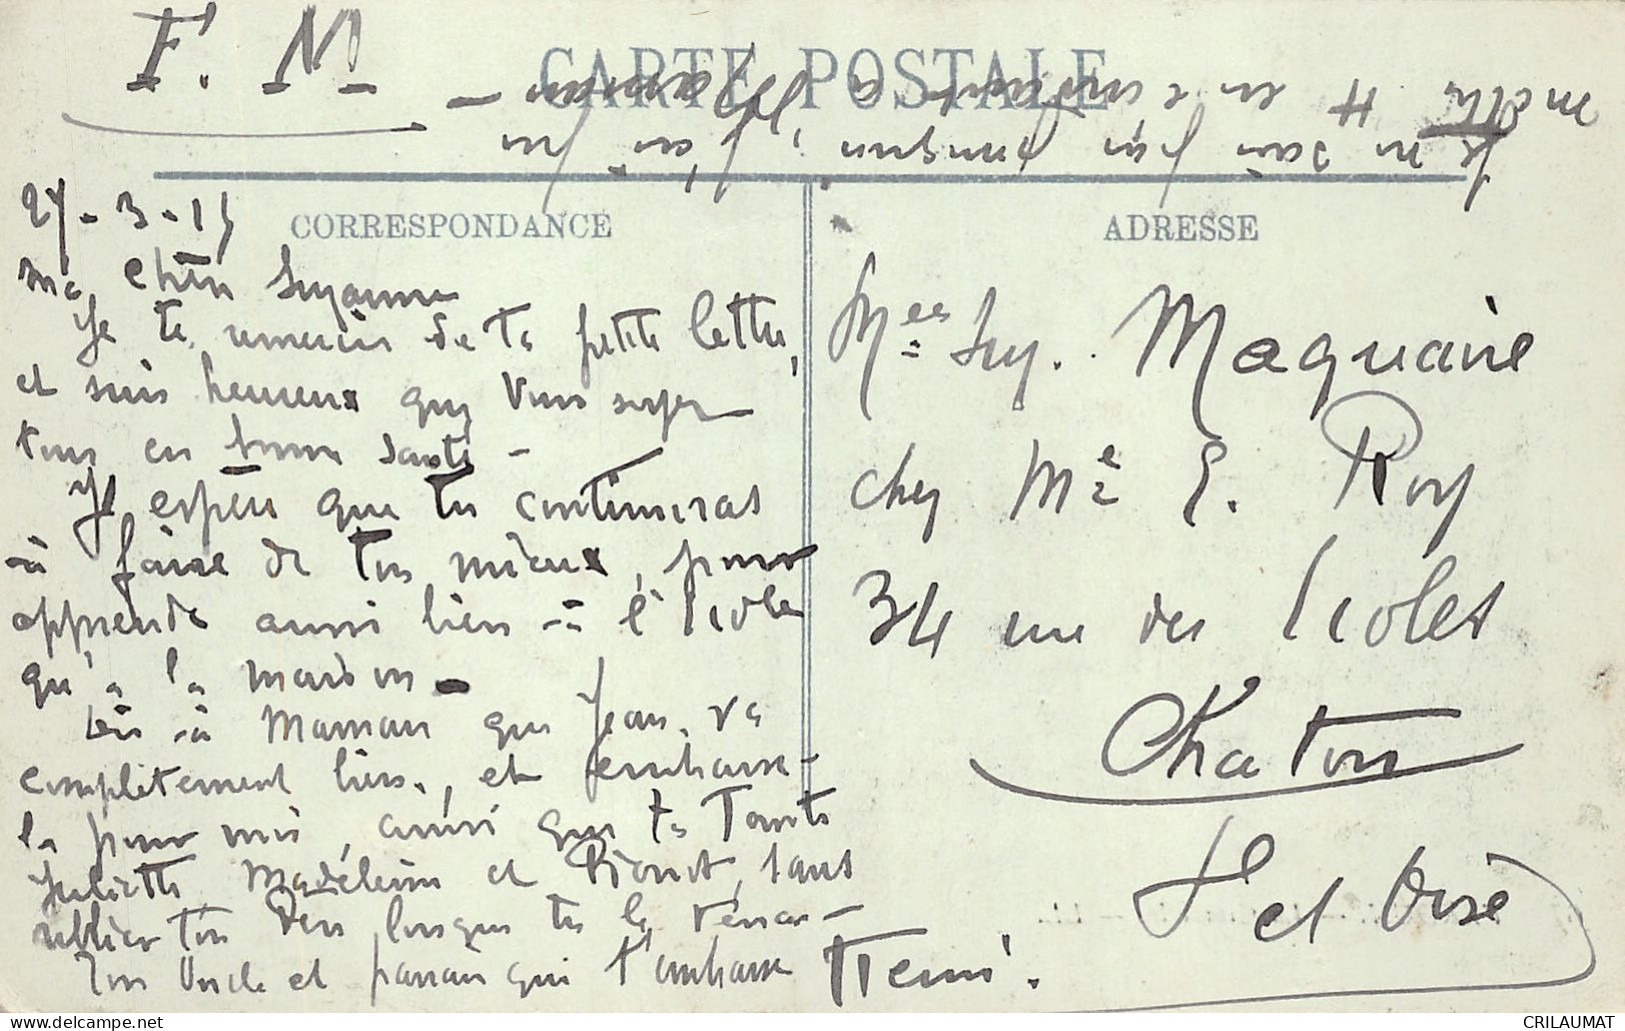 F. M.
CARTE POSTALE
CORRESPONDANCE
ADRESSE
27-3-15
Ma Chère Suzanne
Je te remercie de ta petite lettre,
et suis heureux que vous soyez
tous en bonne santé -
J'espère que tu continueras
à faire de ton mieux, pour
apprendre aussi bien à l'école
qu'à la maison -
Dis à Maman que Jean va
complètement bien, et embrasse-
la pour moi, ainsi que ta Tante
Juliette, Madeleine et Pierrot, sans
oublier ton Père lorsque tu le verras -
Ton Oncle et parrain qui t'embrasse Remi.
Melle Suz. Maquaire
chez Me E. Roy
34 rue des Ecoles
Chatou
S et Oise
Je ne sais pas pourquoi, j'ai
mis en e